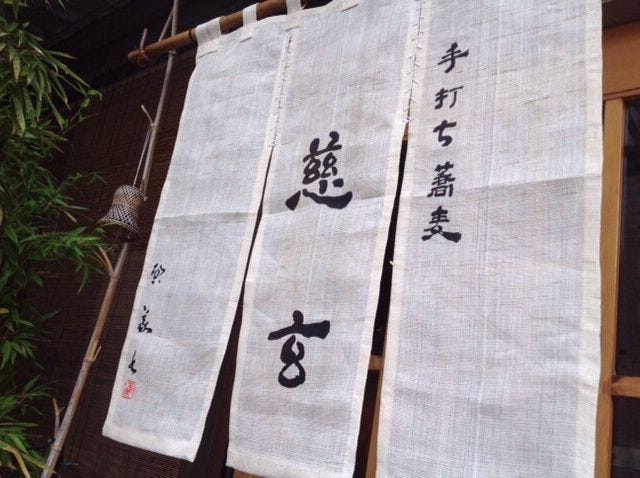 手打ち蕎麦
慈玄